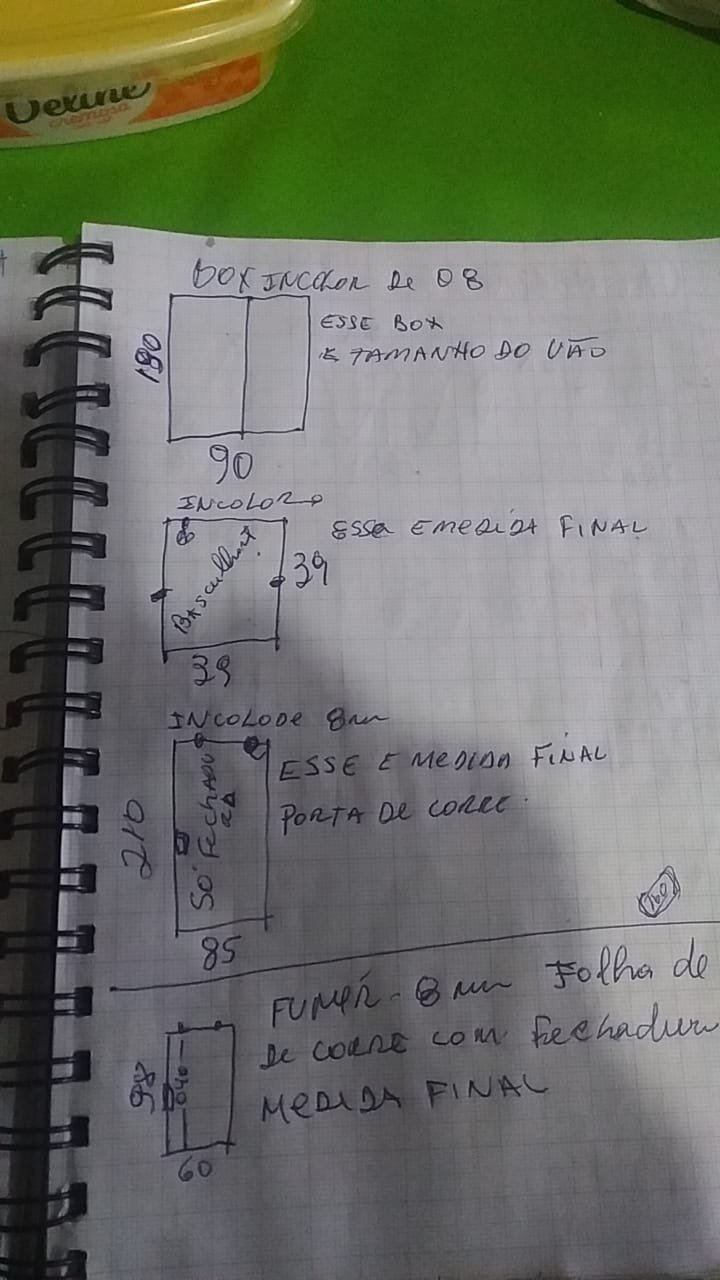 cremosa
BOX INCOLOR DE 08
ESSE BOX
E TAMANHO DO VÃO
190
90
INCOLOR
ESSA E MEDIDA FINAL
39
39
INCOLO DE 8mm
ESSE E MEDIDA FINAL
PORTA DE CORRE.
SÓ FECHADU
RA
210
85
FUMÊ - 8 mm Folha de
DE CORRE com Fechadur
MEDIDA FINAL
98
60